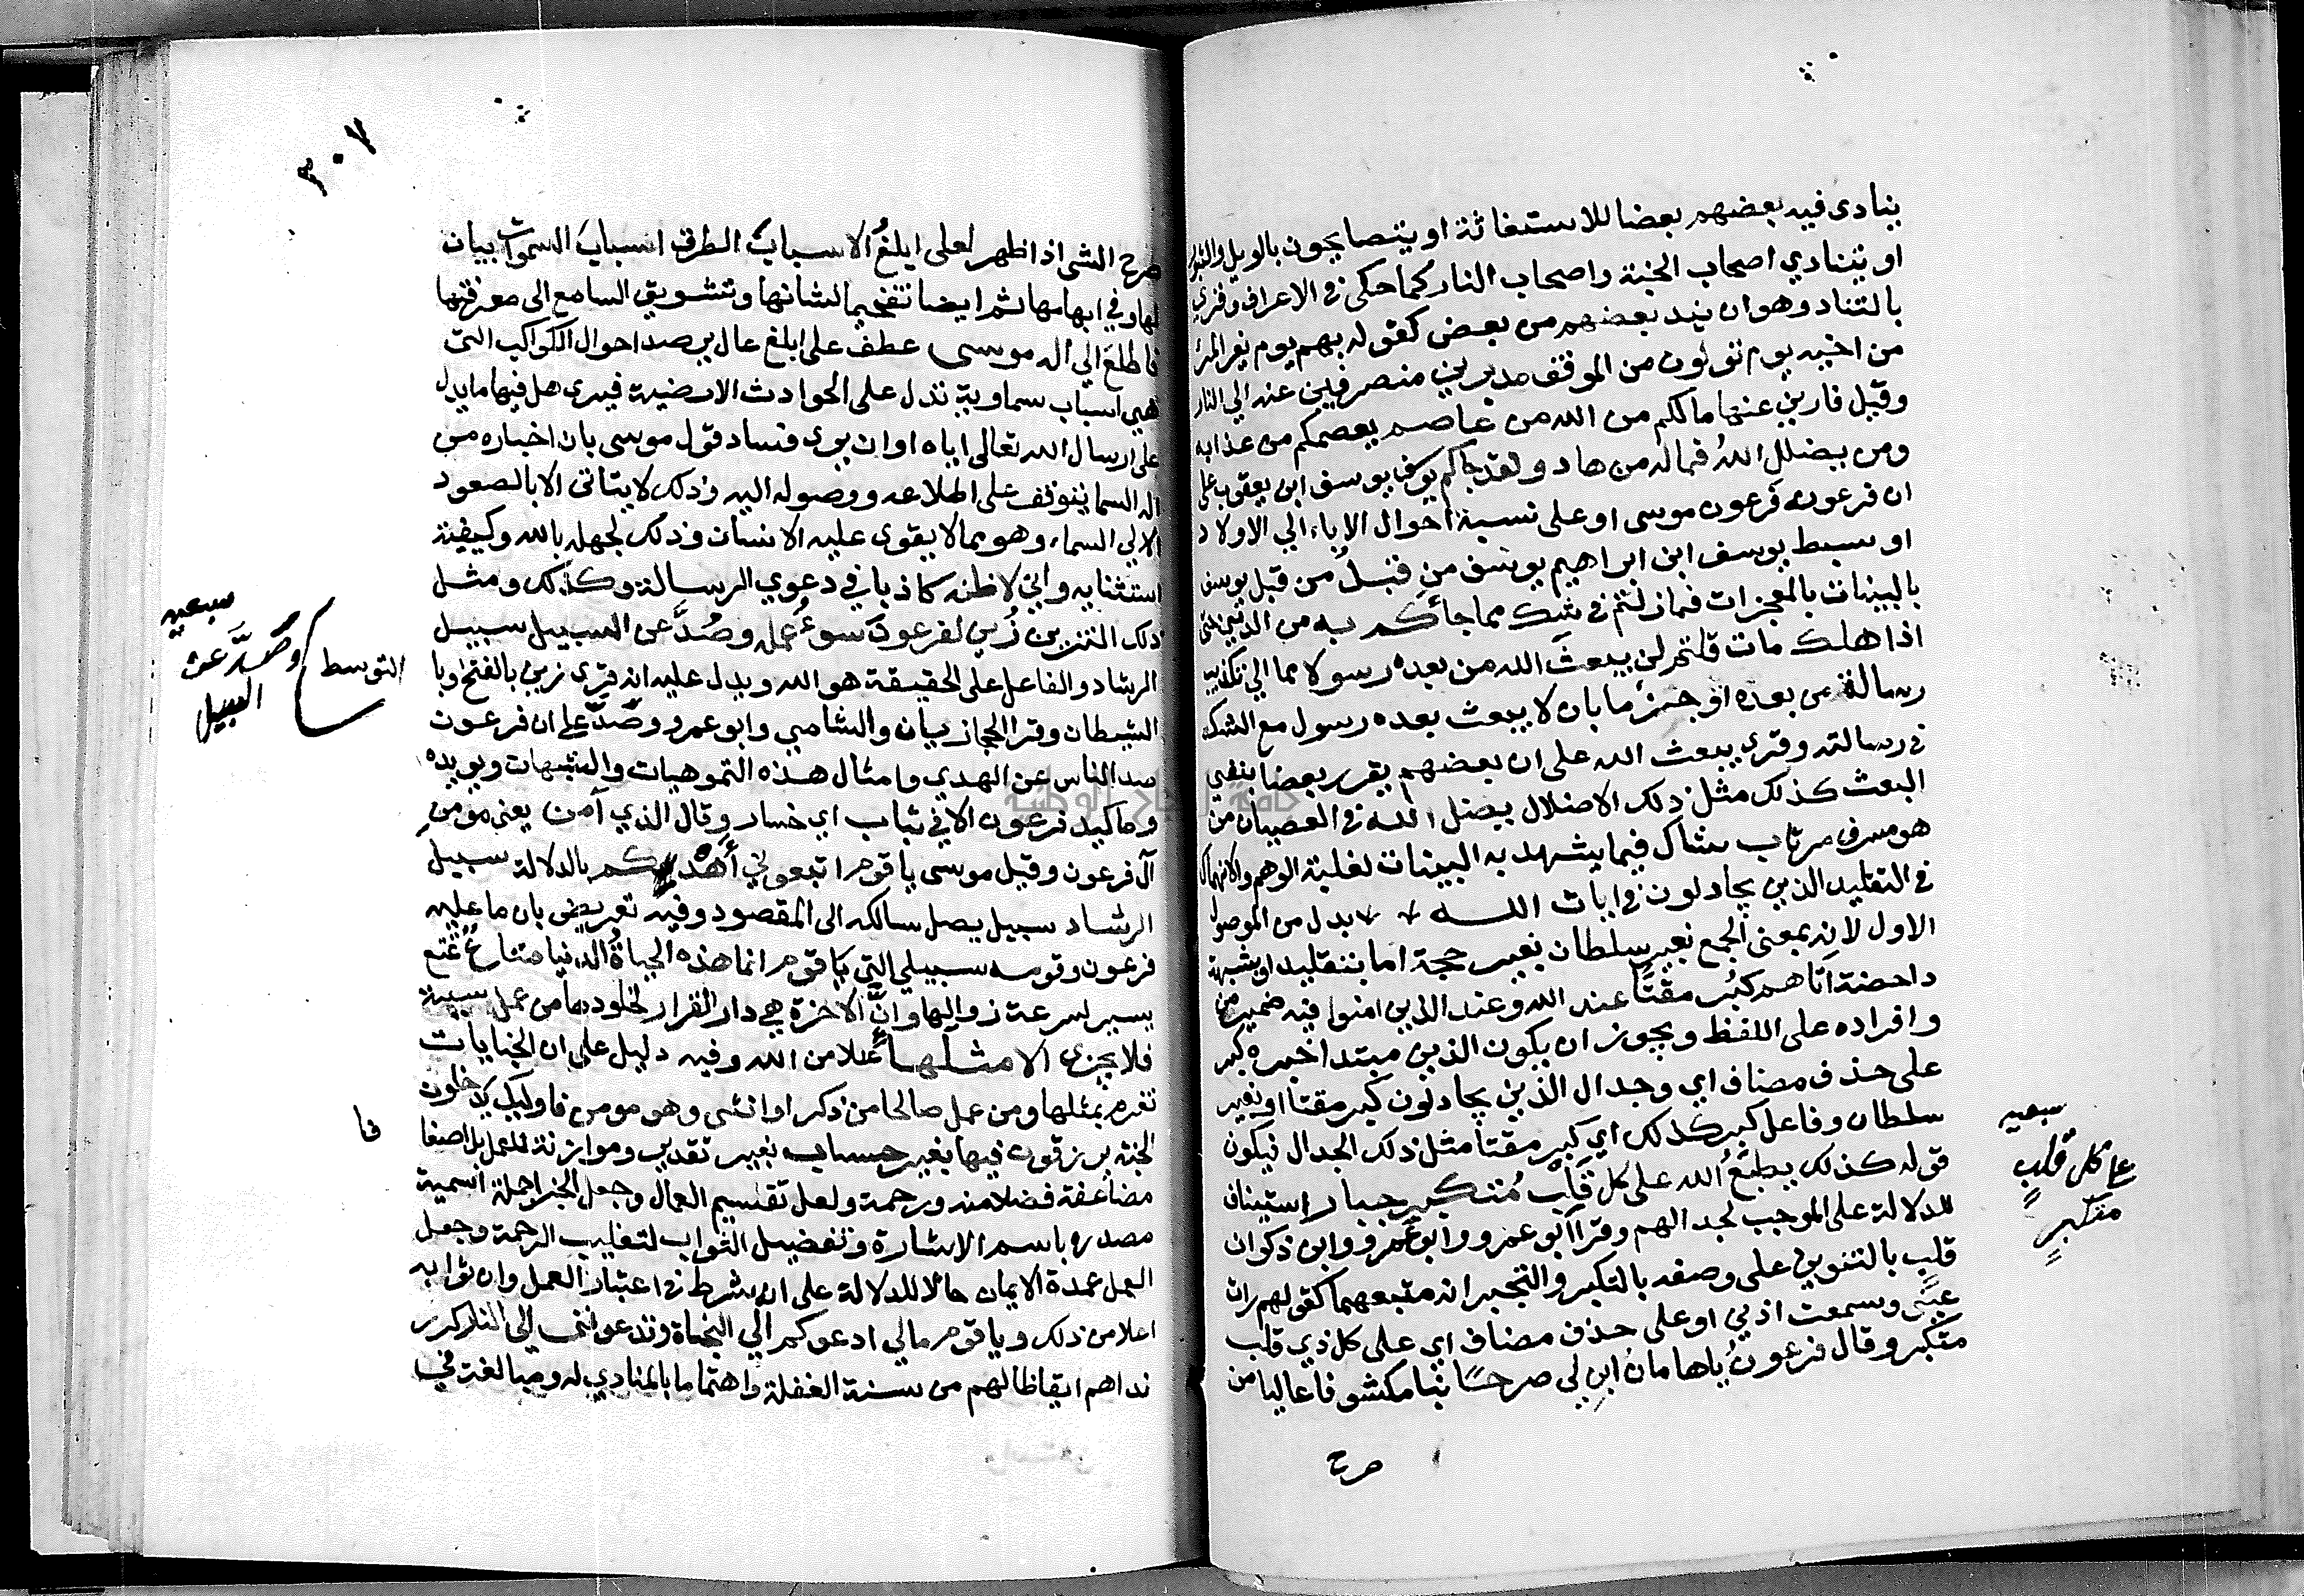 ينادى فيه بعضهم بعضا للاستغاثة او يتصايحون بالويل والثبور
او يتنادي اصحاب الجنة واصحاب النار كما حكى في الاعراف وقري
بالتناد وهو ان يند بعضهم من بعض كقوله بهم يوم يفر المرء
من اخيه يوم تولون من الموقف مدبرين منصرفين عنه الي النار
وقيل فارين عنها مالكم من الله من عاصم يعصمكم من عذابه
ومن يضلل اللهُ فماله من هاد ولقد جاكم يوسف ابن يعقوب على
ان فرعونه فرعون موسى او على نسبة احوال الاباء الي الاولاد
او سبط يوسف ابن ابراهيم يوسف من قبلُ من قبل يوسف
بالبينات بالمعجزات فمازلتم في شك مما جائكم به من الدين حتى
اذا هلك مات قلتم لن يبعثَ الله من بعده رسولا مما الي تكذيب
رسالة من بعده او جزما بان لا يبعث بعده رسول مع الشك
في رسالته وقري يبعث الله على ان بعضهم يقرر بعضا بنفي
البعث كذلك مثل ذلك الاضلال يضل الله في العصيان من
هو مسرف مرتاب شاك فيما يشهد به البينات لغلبة الوهم والانهماك
في التقليد الذين يجادلون في ايات الله بدل من الموصول
الاول لانه بمعنى الجمع بغير سلطان بغير حجة اما بتقليد او بشبهة
داحضة اتاهم كبُر مقتًا عند الله وعند الذين امنوا فيه ضمير من
وافراده على اللفظ ويجوز ان يكون الذين مبتدا خبره كبر
على حذف مضاف اي وجدال الذين يجادلون كبر مقتا او بغير
سلطان وفاعل كبر كذلك اي كبر مقتا مثل ذلك الجدال فيكون
قوله كذلك يطبعُ الله على كل قلب مُتكبر جبار استينان
للدلالة على الموجب لجدالهم وقرا ابو عمرو وابو عمرو وابن ذكوان
قلبٍ بالتنوين على وصفه بالتكبر والتجبر انه منبعهما كقولهم رات
عيني وسمعت اذني او على حذف مضاف اي على كل ذي قلب
متكبر وقال فرعونُ ياهامان ابنِ لي صرحًا بنا مكشوفا عاليا من
صرح
سبعيه
على كل قلبٍ
متكبرٍ
٣٠٧
صرح الشى اذا ظهر لعلى ابلغُ الاسبابَ الطرق اسبابَ السموات بيان
لها وفي ابهامها ثم ايضا تفخيم لشانها وتشويق السامع الى معرفتها
فاطلعَ الي اله موسى عطف على ابلغ عال يرصد احوال الكواكب التى
هي اسباب سماوية تدل على الحوادث الارضية فيرى هل فيها ما يدل
على ارسال الله تعالى اياه او ان يرى فساد قول موسى بان اخباره من
اله السما يتوقف على اطلاعه ووصوله اليه وذلك لا يتاتى الا بالصعود
الا الي السماء وهو مما لا يقوى عليه الانسان وذلك لجهله بالله وكيفية
استثنايه واني لاظنه كاذبا في دعوي الرسالة وكذلك ومثل
ذلك التزيين زُين لفرعونَ سوءُ عمله وصُدَّ عن السبيل سبيل
الرشاد والفاعل على الحقيقة هو الله ويدل عليه انه قرى زين بالفتح وبا
الشيطان وقرا الحجازيان والشامي وابو عمرو وصَدَّ على ان فرعون
سد الناس عن الهدي وامثال هذه التموهيات والشبهات ويويده
وما كيد فرعون الا في تباب اي خسار وقال الذي آمن يعنى مومن
آل فرعون وقيل موسى ياقوم اتبعوني أهدكم بالدلالة سبيل
الرشاد سبيل يصل سالكه الى المقصود وفيه تعريض بان ما عليه
فرعون وقومه سبيل الغي ياقوم انما هذه الحياةُ الدنيا متاعٌ تمتع
يسير لسرعة زوالها وانَّ الاخرة هي دار القرار لخلودها من عمل سيية
فلا يجزى الا مثلها عدلا من الله وفيه دليل على ان الجنايات
تغرم بمثلها ومن عمل صالحا من ذكر او انثى وهو مومن فاوليك يدخلون
الجنة يرزقون فيها بغير حساب بغير تقدير وموازنة للعمل بل اضعا
مضاعفة فضلا منه ورحمة ولعل تقسيم العمال وجعل الجزا جملة اسمية
مصدره باسم الاشارة وتفضيل الثواب لتغليب الرحمة وجعل
العمل عمدة الايمان حالا للدلالة على انه شرط في اعتبار العمل وان ثوابه
اعلا من ذلك وياقوم مالي ادعوكم الي النجاة وتدعوننى الي النار كرر
نداهم ايقاظا لهم من سنة الغفلة واهتماما بالمنادي له ومبالغة في
سبعيه
وصَدَّ عن
السبيل
التوسط
فا